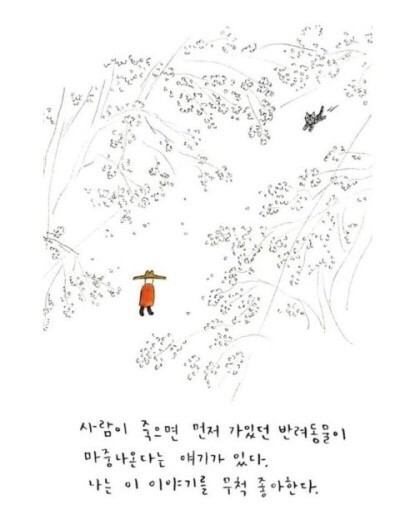 사람이 죽으면 먼저 가있던 반려동물이
마중나온다는 얘기가 있다.
나는 이 이야기를 무척 좋아한다.